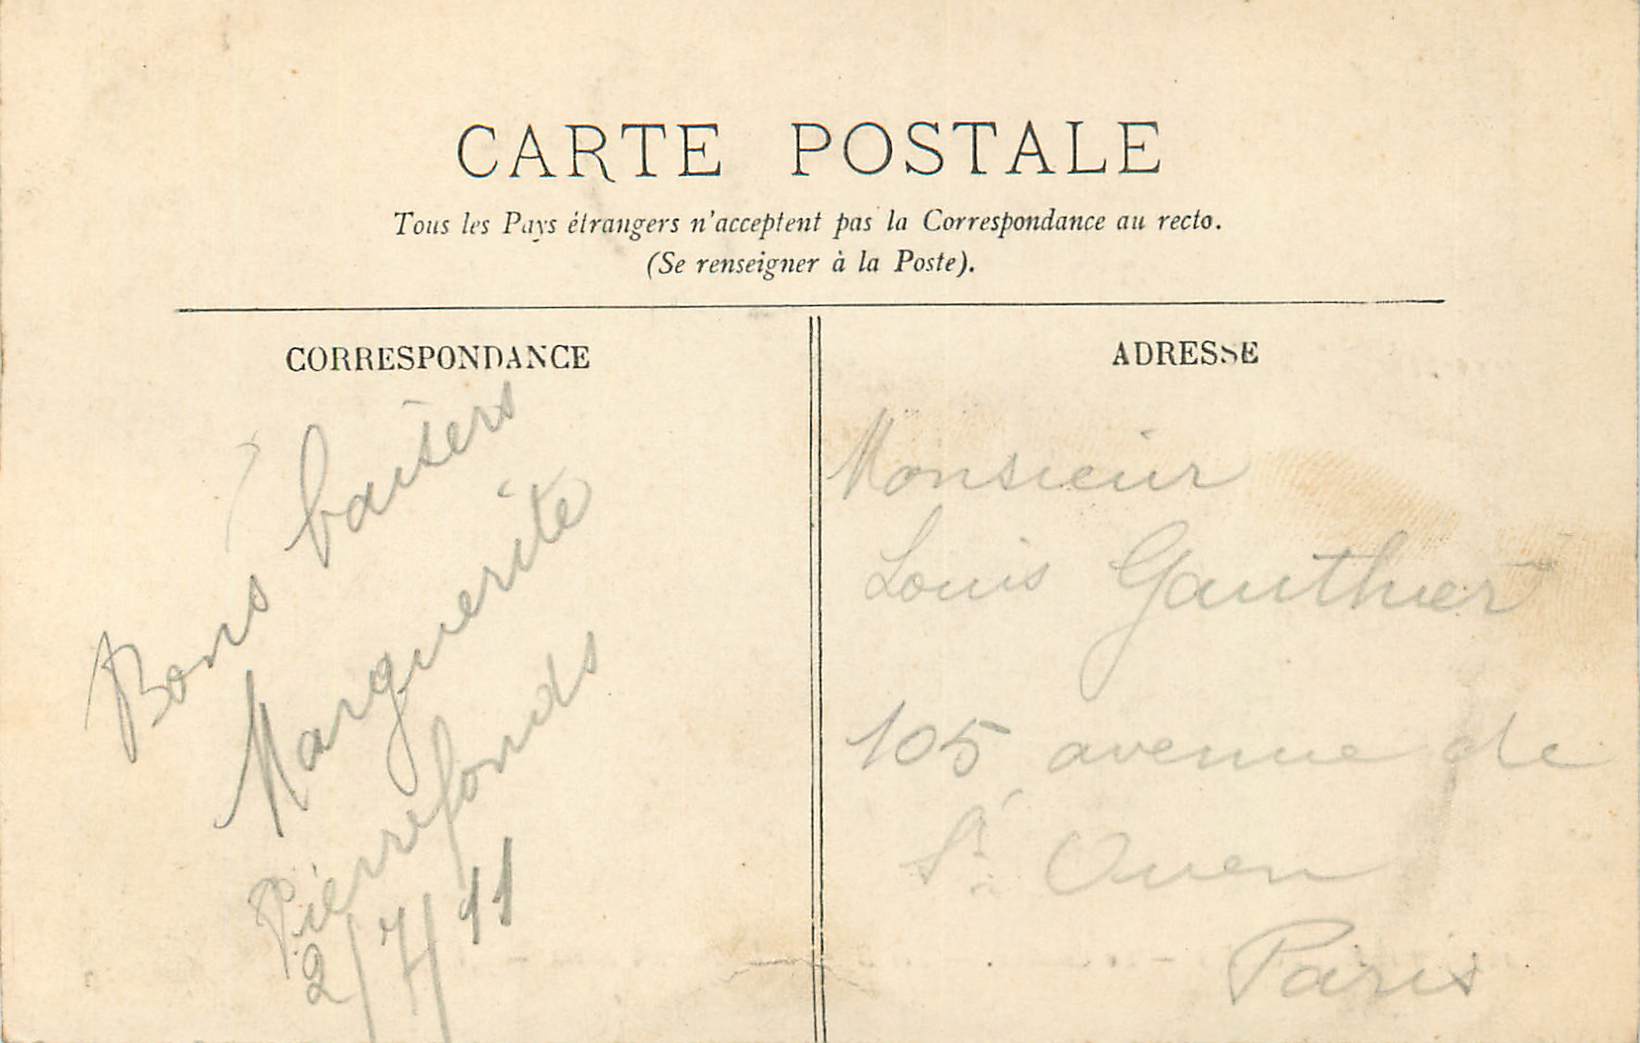 CARTE POSTALE
Tous les Pays étrangers n'acceptent pas la Correspondance au recto.
(Se renseigner à la Poste).
CORRESPONDANCE
Bons baisers
Marguerite
Pierrefonds
2/7/11
ADRESSE
Monsieur
Louis Gauthier
105 avenue de
St Ouen
Paris